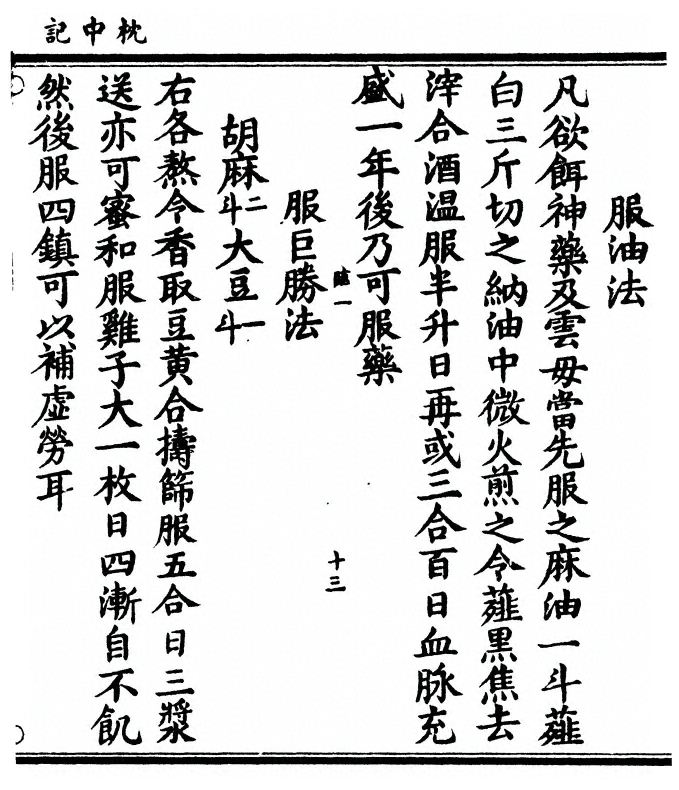 枕中記
服油法
凡欲餌神藥及雲毋當先服之麻油一斗薤
白三斤切之納油中微火煎之令薤黑焦去
滓合酒温服半升日再或三合百日血脉充
盛一年後乃可服藥
十三
服巨勝法
胡麻二斗大豆一斗
右各熬令香取豆黄合擣篩服五合日三漿
送亦可蜜和服雞子大一枚日四漸自不飢
然後服四鎮可以補虛勞耳